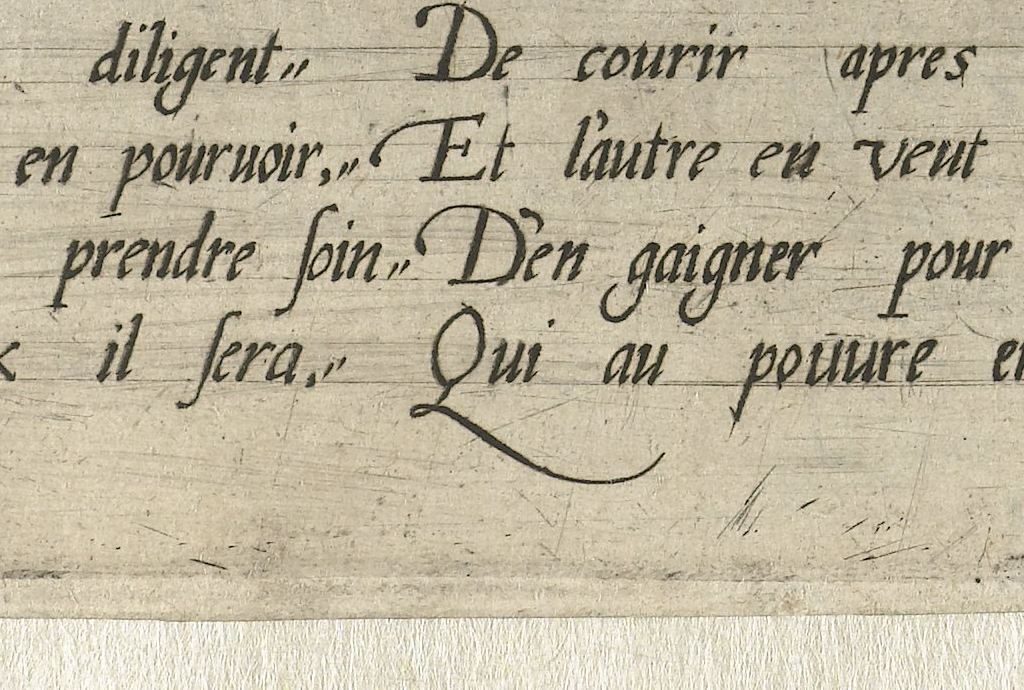 diligent„ De courir apres
en pouruoir,„ Et l'autre en veut
prendre ſoin„ D'en gaigner pour
il ſera,„ Qui au pouure